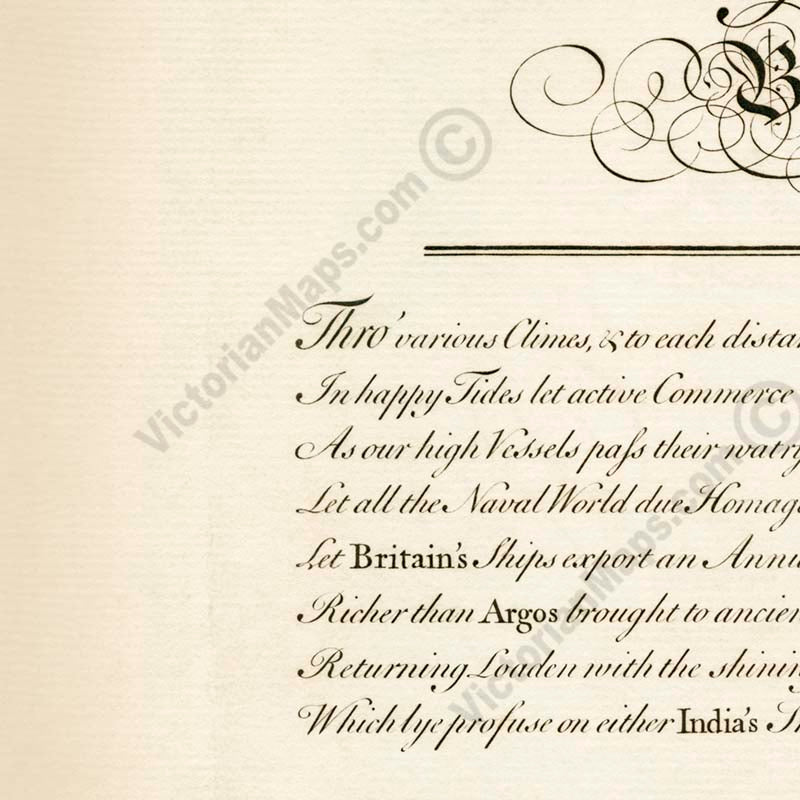 B
Thro' various Climes, & to each distan
In happy Tides let active Commerce
As our high Vessels paſs their watry
Let all the Naval World due Homage
Let Britain's Ships export an Annu
Richer than Argos brought to ancien
Returning Loaden with the shining
Which lye profuse on either India's Sh
VictorianMaps.com ©
VictorianMaps.com ©